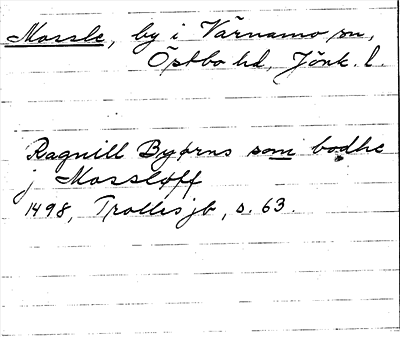 Mossle, by i Värnamo sn,
Östbo hd, Jönk. l.
Ragnill Byørns som bodhe
j Mossløff
1498, Trolles jb, s. 63.